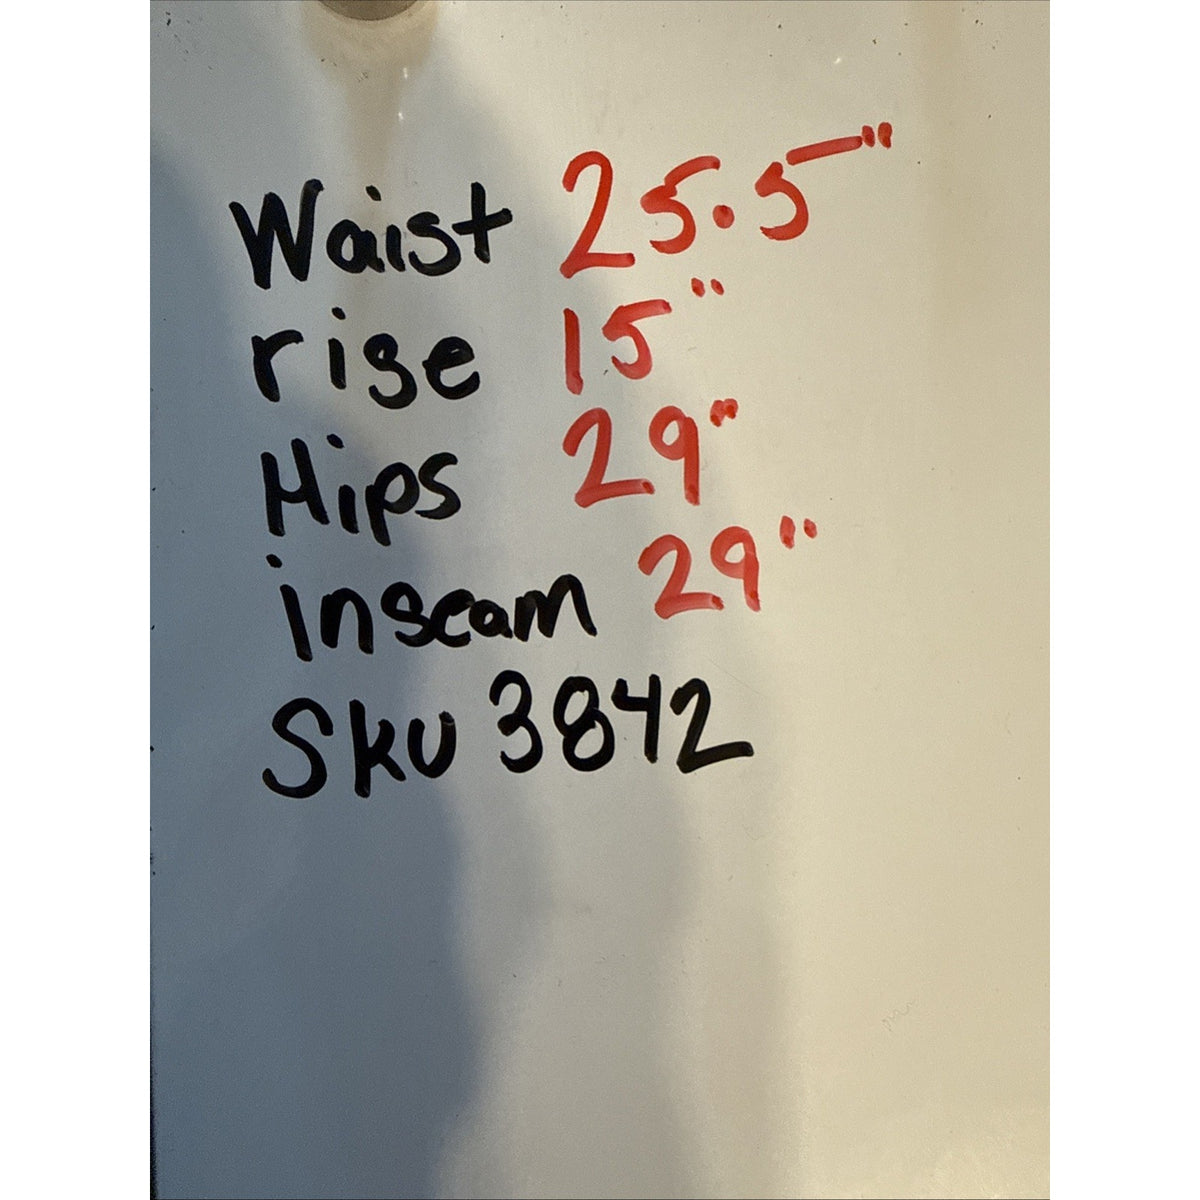 Waist 25.5"
rise 15"
Hips 29"
inseam 29"
SKU 3842